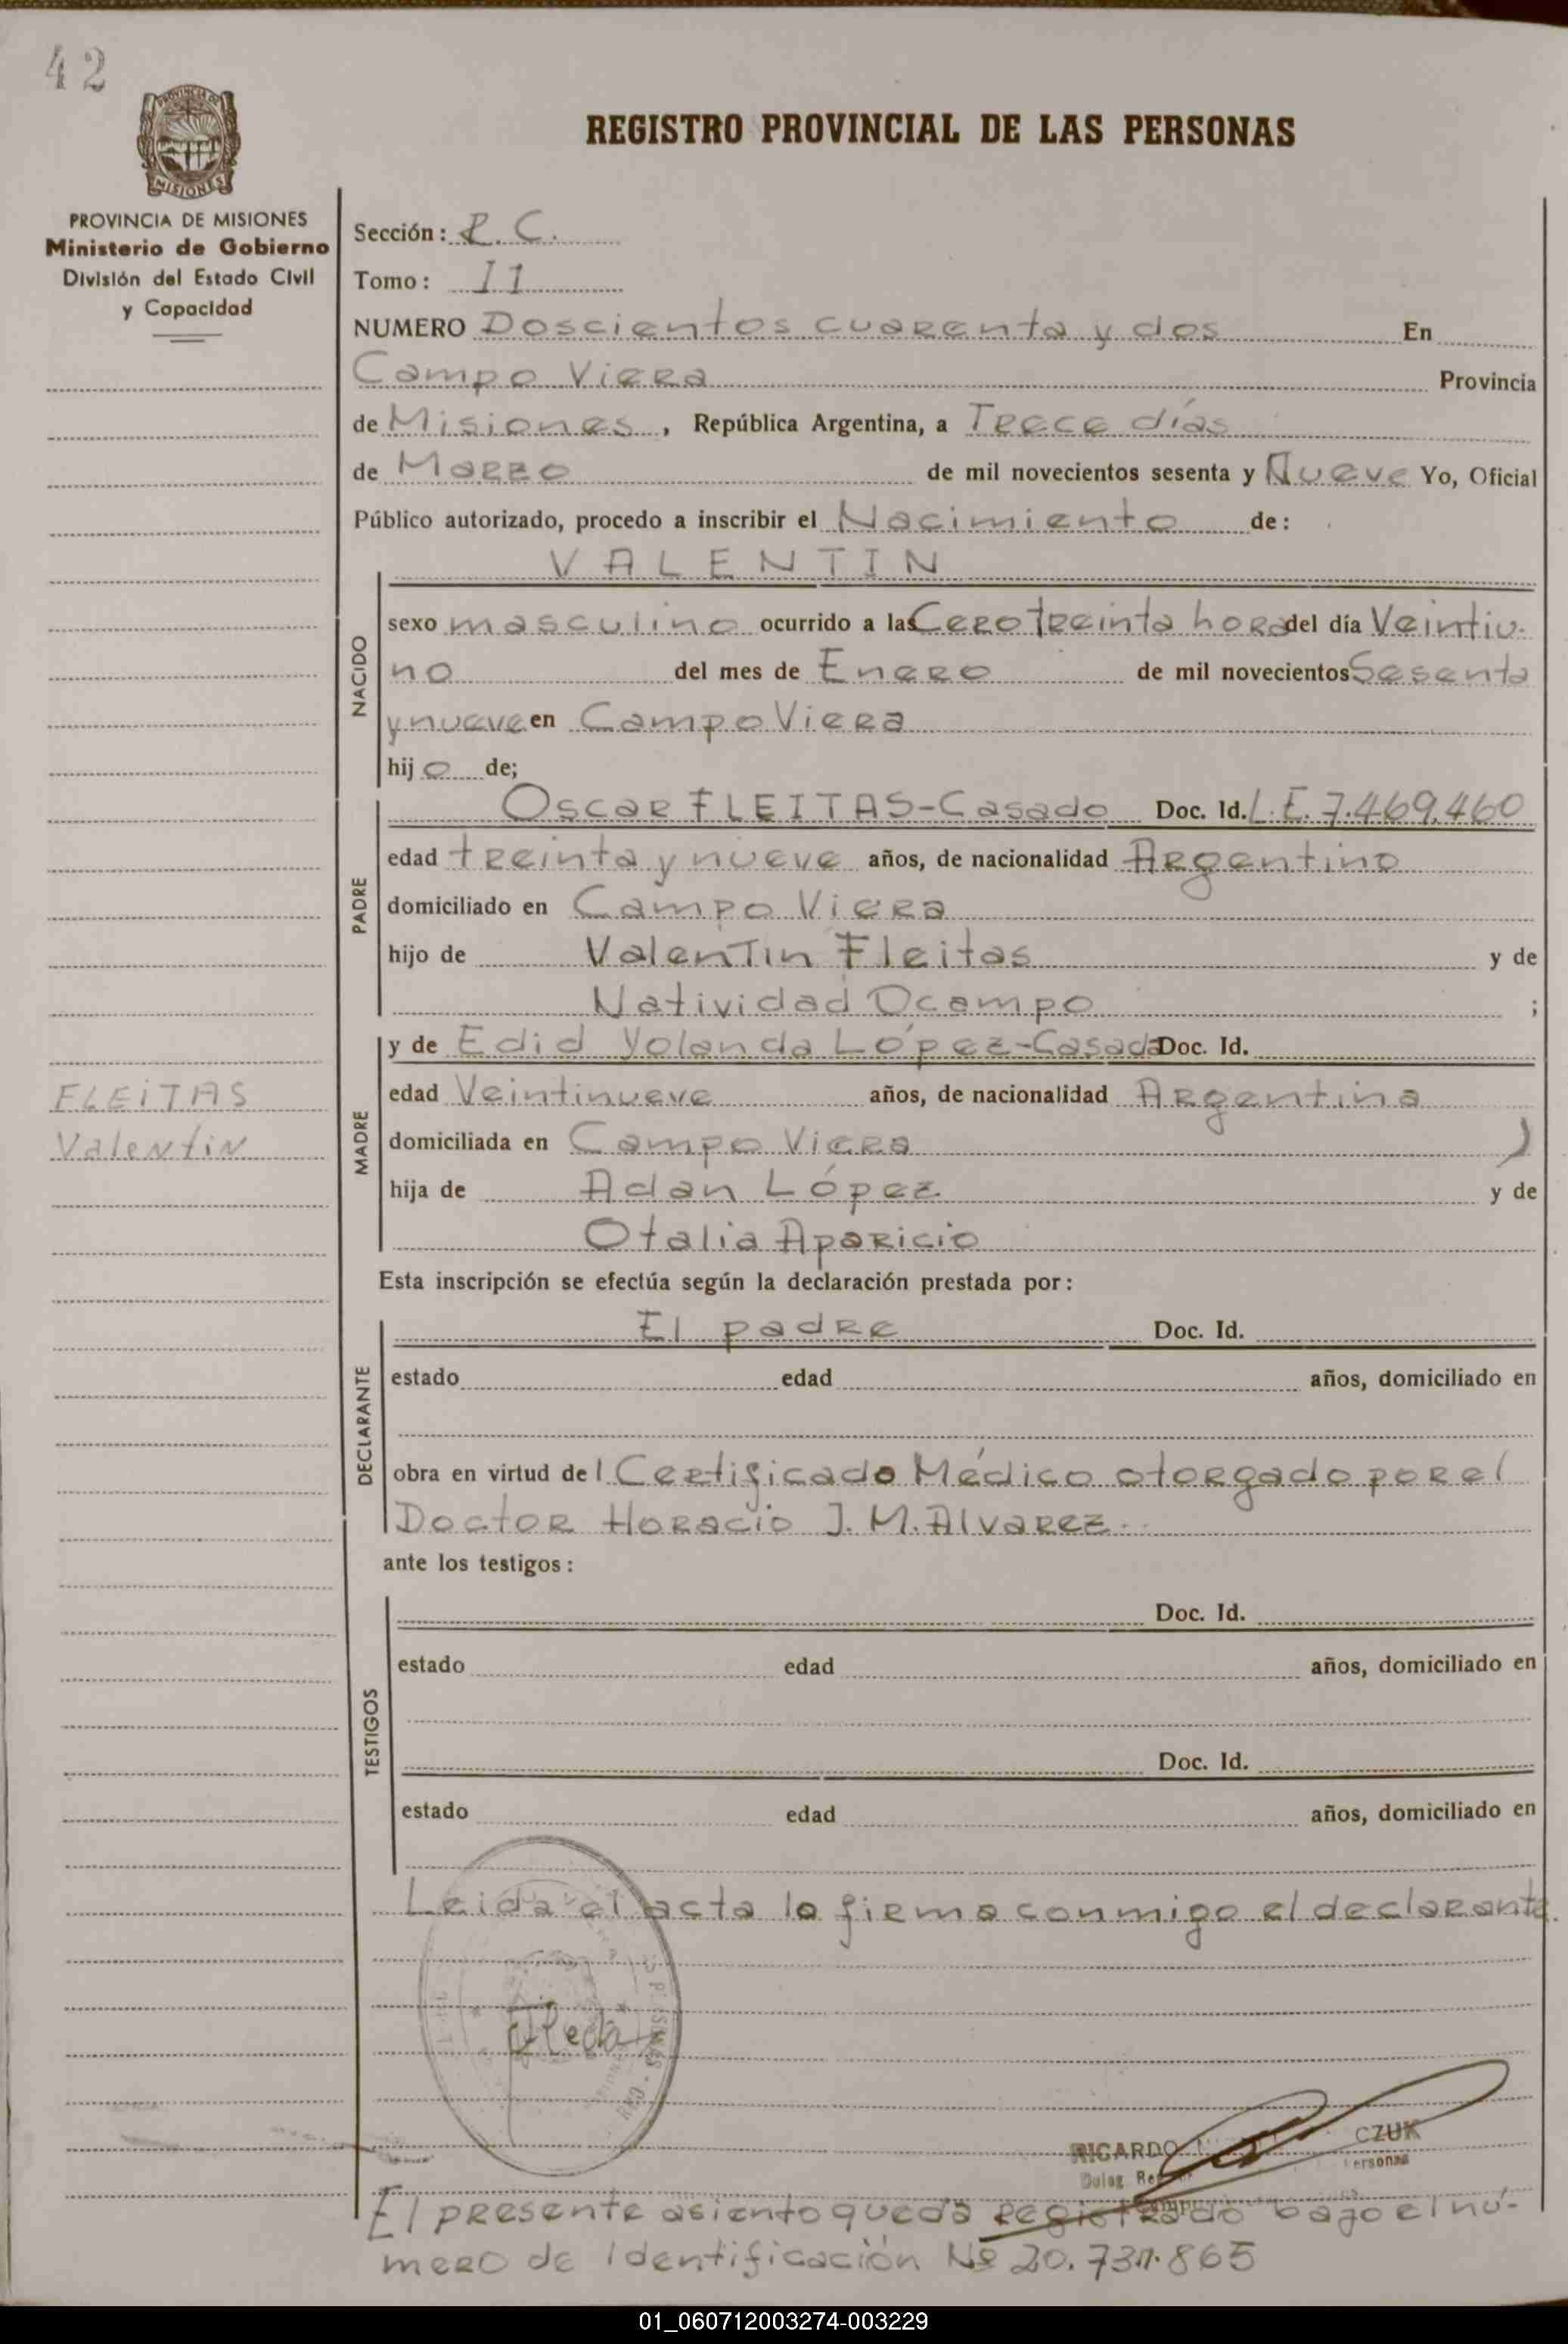 42
PROVINCIA DE
MISIONES
REGISTRO PROVINCIAL DE LAS PERSONAS
PROVINCIA DE MISIONES
Ministerio de Gobierno
División del Estado Civil
y Capacidad
Sección: R.C.
Tomo: II
NUMERO Doscientos cuarenta y dos En
Campo Viera Provincia
de Misiones, República Argentina, a Trece días
de Marzo de mil novecientos sesenta y Nueve Yo, Oficial
Público autorizado, procedo a inscribir el Nacimiento de:
VALENTIN
NACIDO
sexo masculino ocurrido a las Cero treinta hora del día Veintiu-
no del mes de Enero de mil novecientos Sesenta
y nueve en Campo Viera
hijo de;
PADRE
Oscar FLEITAS-Casado Doc. Id. L.E. 7.469.460
edad treinta y nueve años, de nacionalidad Argentino
domiciliado en Campo Viera
hijo de Valentin Fleitas y de
Natividad Ocampo ;
MADRE
y de Edid Yolanda López-Casada Doc. Id.
edad Veintinueve años, de nacionalidad Argentina
domiciliada en Campo Viera
hija de Adan López y de
Otalia Aparicio
FLEITAS
Valentin
Esta inscripción se efectúa según la declaración prestada por:
DECLARANTE
El padre Doc. Id.
estado edad años, domiciliado en
obra en virtud del Certificado Médico otorgado por el
Doctor Horacio J. M. Alvarez.-
ante los testigos:
TESTIGOS
Doc. Id.
estado edad años, domiciliado en
Doc. Id.
estado edad años, domiciliado en
Leida el acta la firma conmigo el declarante.
RICARDO CZUK
El presente asiento queda registrado bajo el nú-
mero de Identificación Nº 20.731.865
01_060712003274-003229